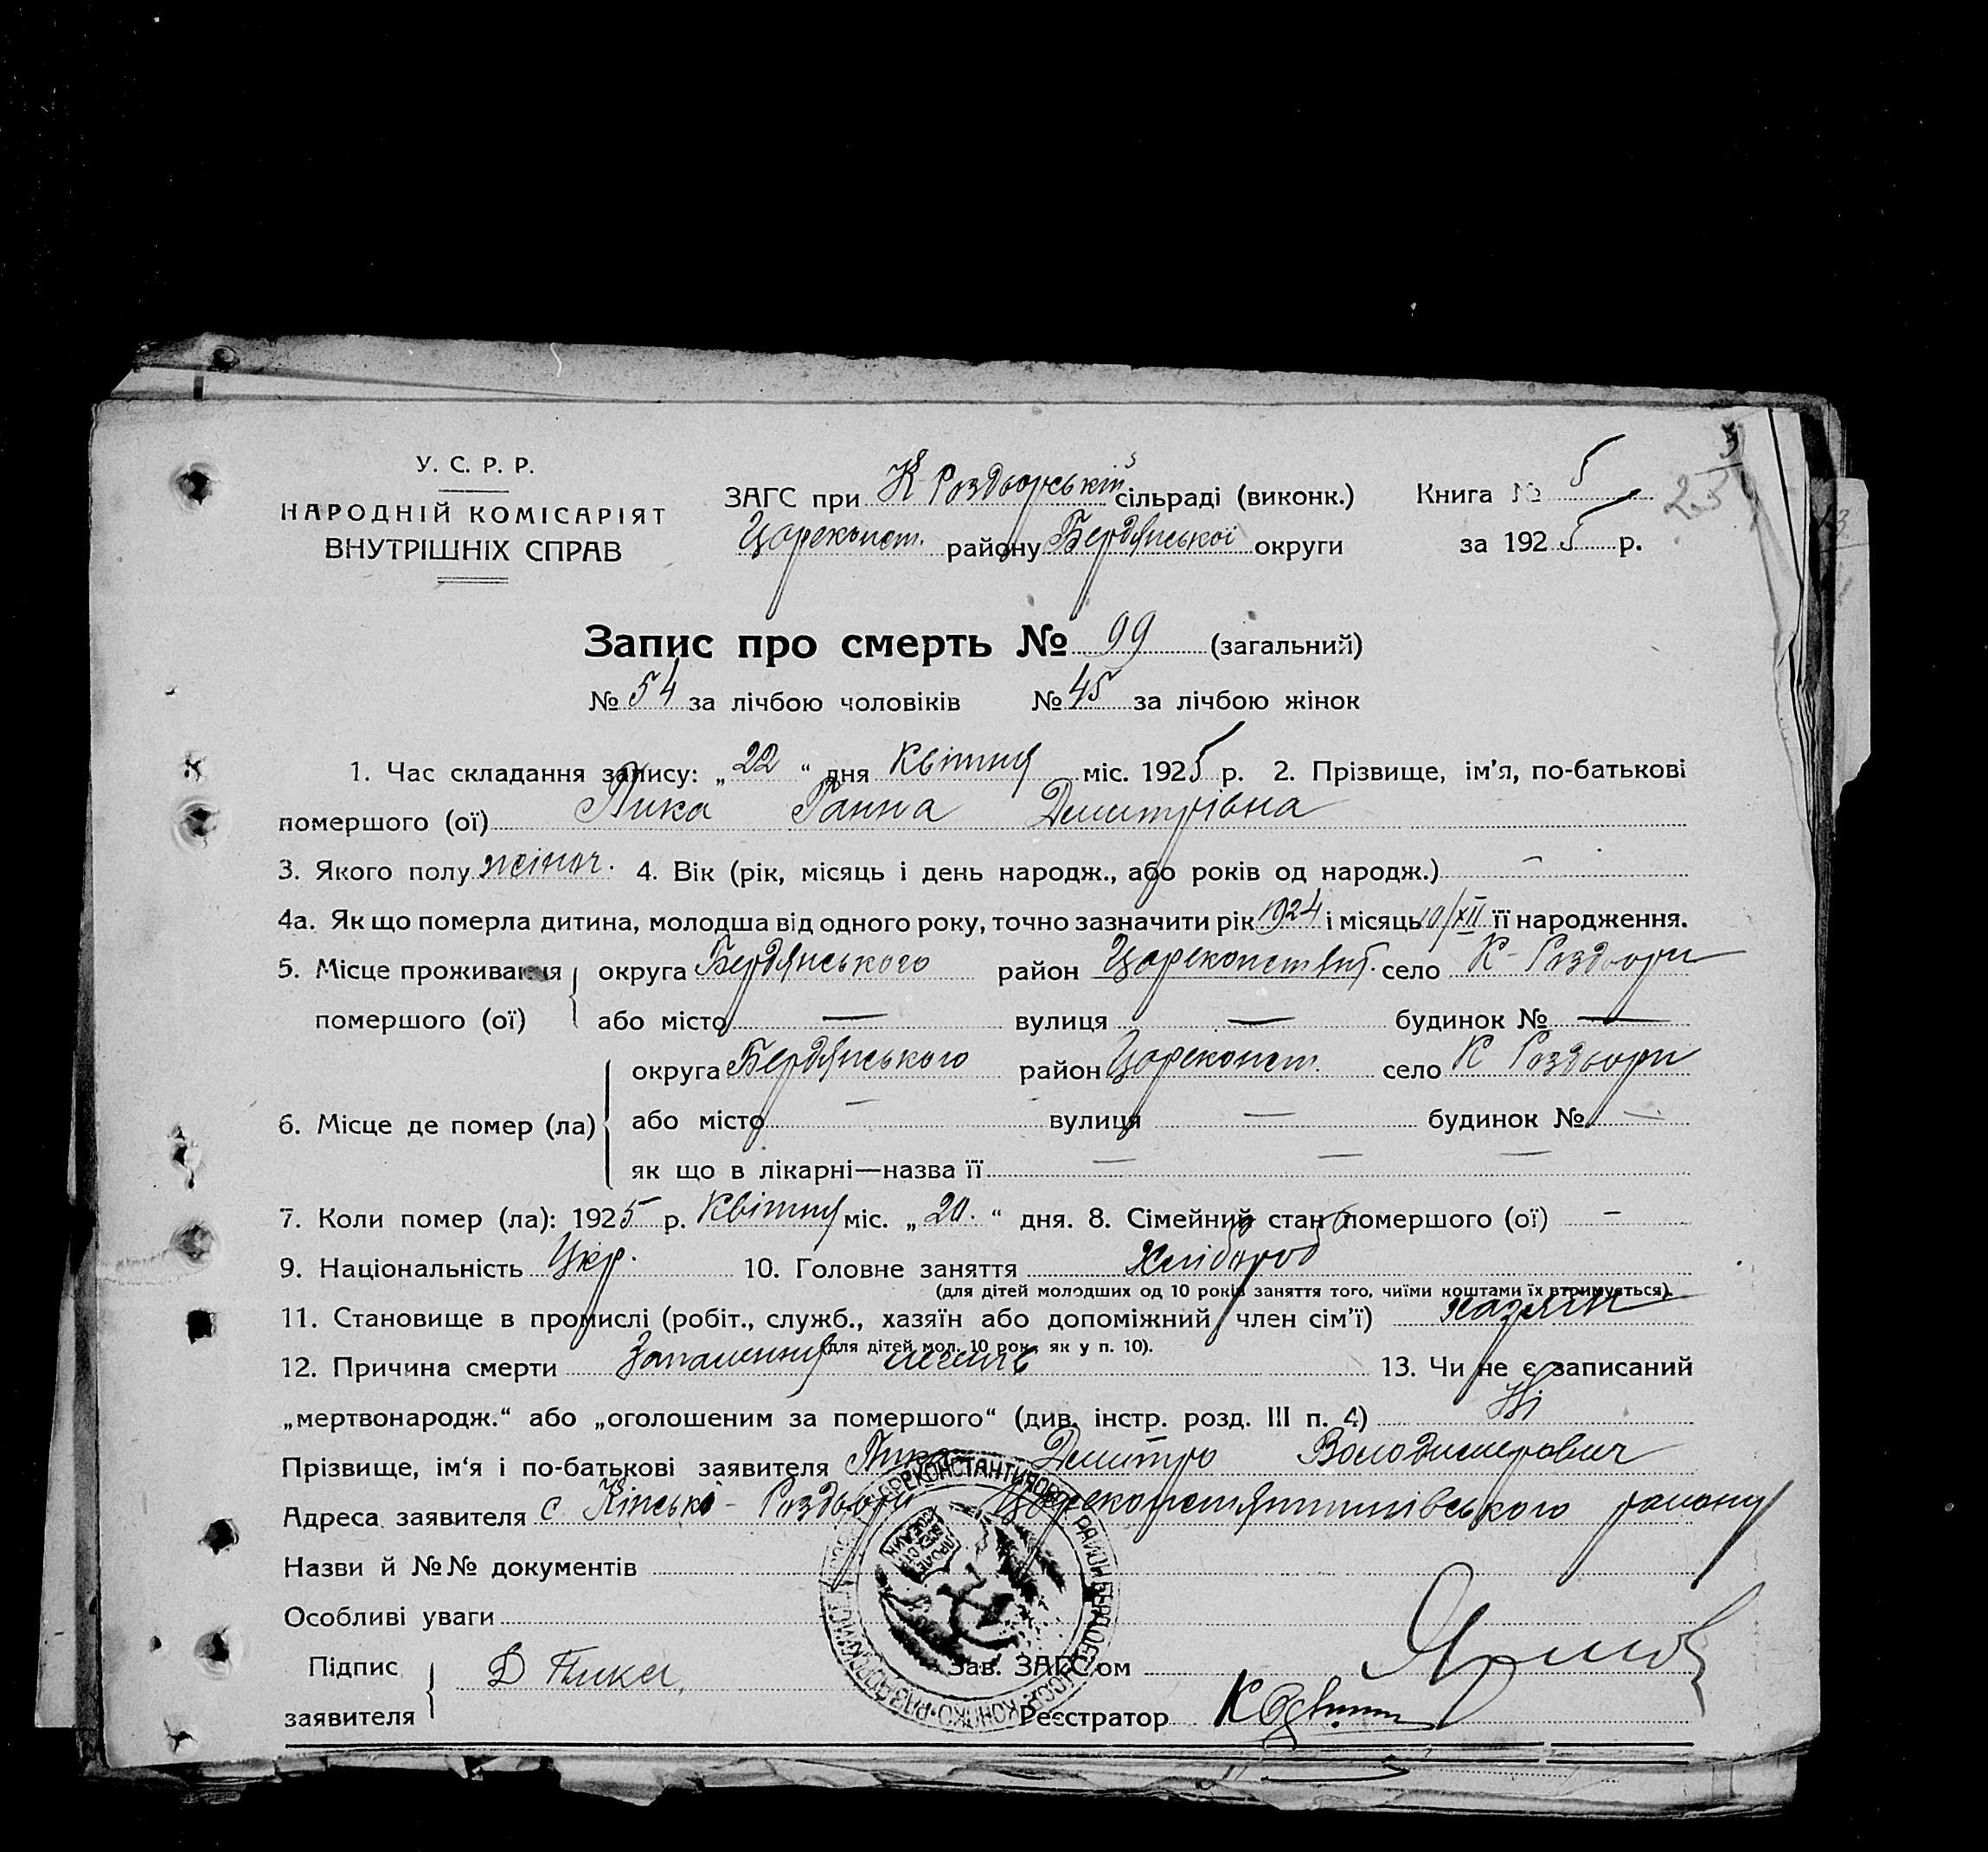 У. С. Р. Р.
НАРОДНІЙ КОМІСАРІЯТ
ВНУТРІШНІХ СПРАВ
ЗАГС при К-Роздорській сільраді (виконк.)
Цареконст. району Бердянської округи
Книга № 5
за 1925 р.
Запис про смерть № 99 (загальний)
№ 54 за лічбою чоловіків № 45 за лічбою жінок
1. Час складання запису: „22“ дня Квітня міс. 1925 р. 2. Прізвище, ім’я, по-батькові
помершого (ої) Пика Ганна Дмитрівна
3. Якого полу жіноч. 4. Вік (рік, місяць і день народж., або років од народж.) —
4а. Як що померла дитина, молодша від одного року, точно зазначити рік 1924 і місяць 10/XII її народження.
5. Місце проживання помершого (ої) округа Бердянського район Цареконстянт. село К-Роздори
або місто — вулиця — будинок № —
6. Місце де помер (ла) округа Бердянського район Цареконст. село К Роздори
або місто — вулиця — будинок № —
як що в лікарні—назва її — — —
7. Коли помер (ла): 1925 р. Квітня міс. „20.“ дня. 8. Сімейний стан помершого (ої) —
9. Національність Укр. 10. Головне заняття Хлібороб
(для дітей молодших од 10 років заняття того, чиїми коштами їх втримується).
11. Становище в промислі (робіт., служб., хазяїн або допоміжний член сім’ї) хазяїн
(для дітей мол. 10 рок., як у п. 10).
12. Причина смерти Запалення легень 13. Чи не є записаний
„мертвонародж.“ або „оголошеним за помершого“ (див. інстр. розд. III п. 4) Ні
Прізвище, ім‘я і по-батькові заявителя Пика Дмитро Володимерович
Адреса заявителя с. Кінські-Роздори Цареконстянтинівського району
Назви й №№ документів
Особливі уваги
Підпис заявителя Д Пика.
Зав. ЗАГС’ом
Реєстратор